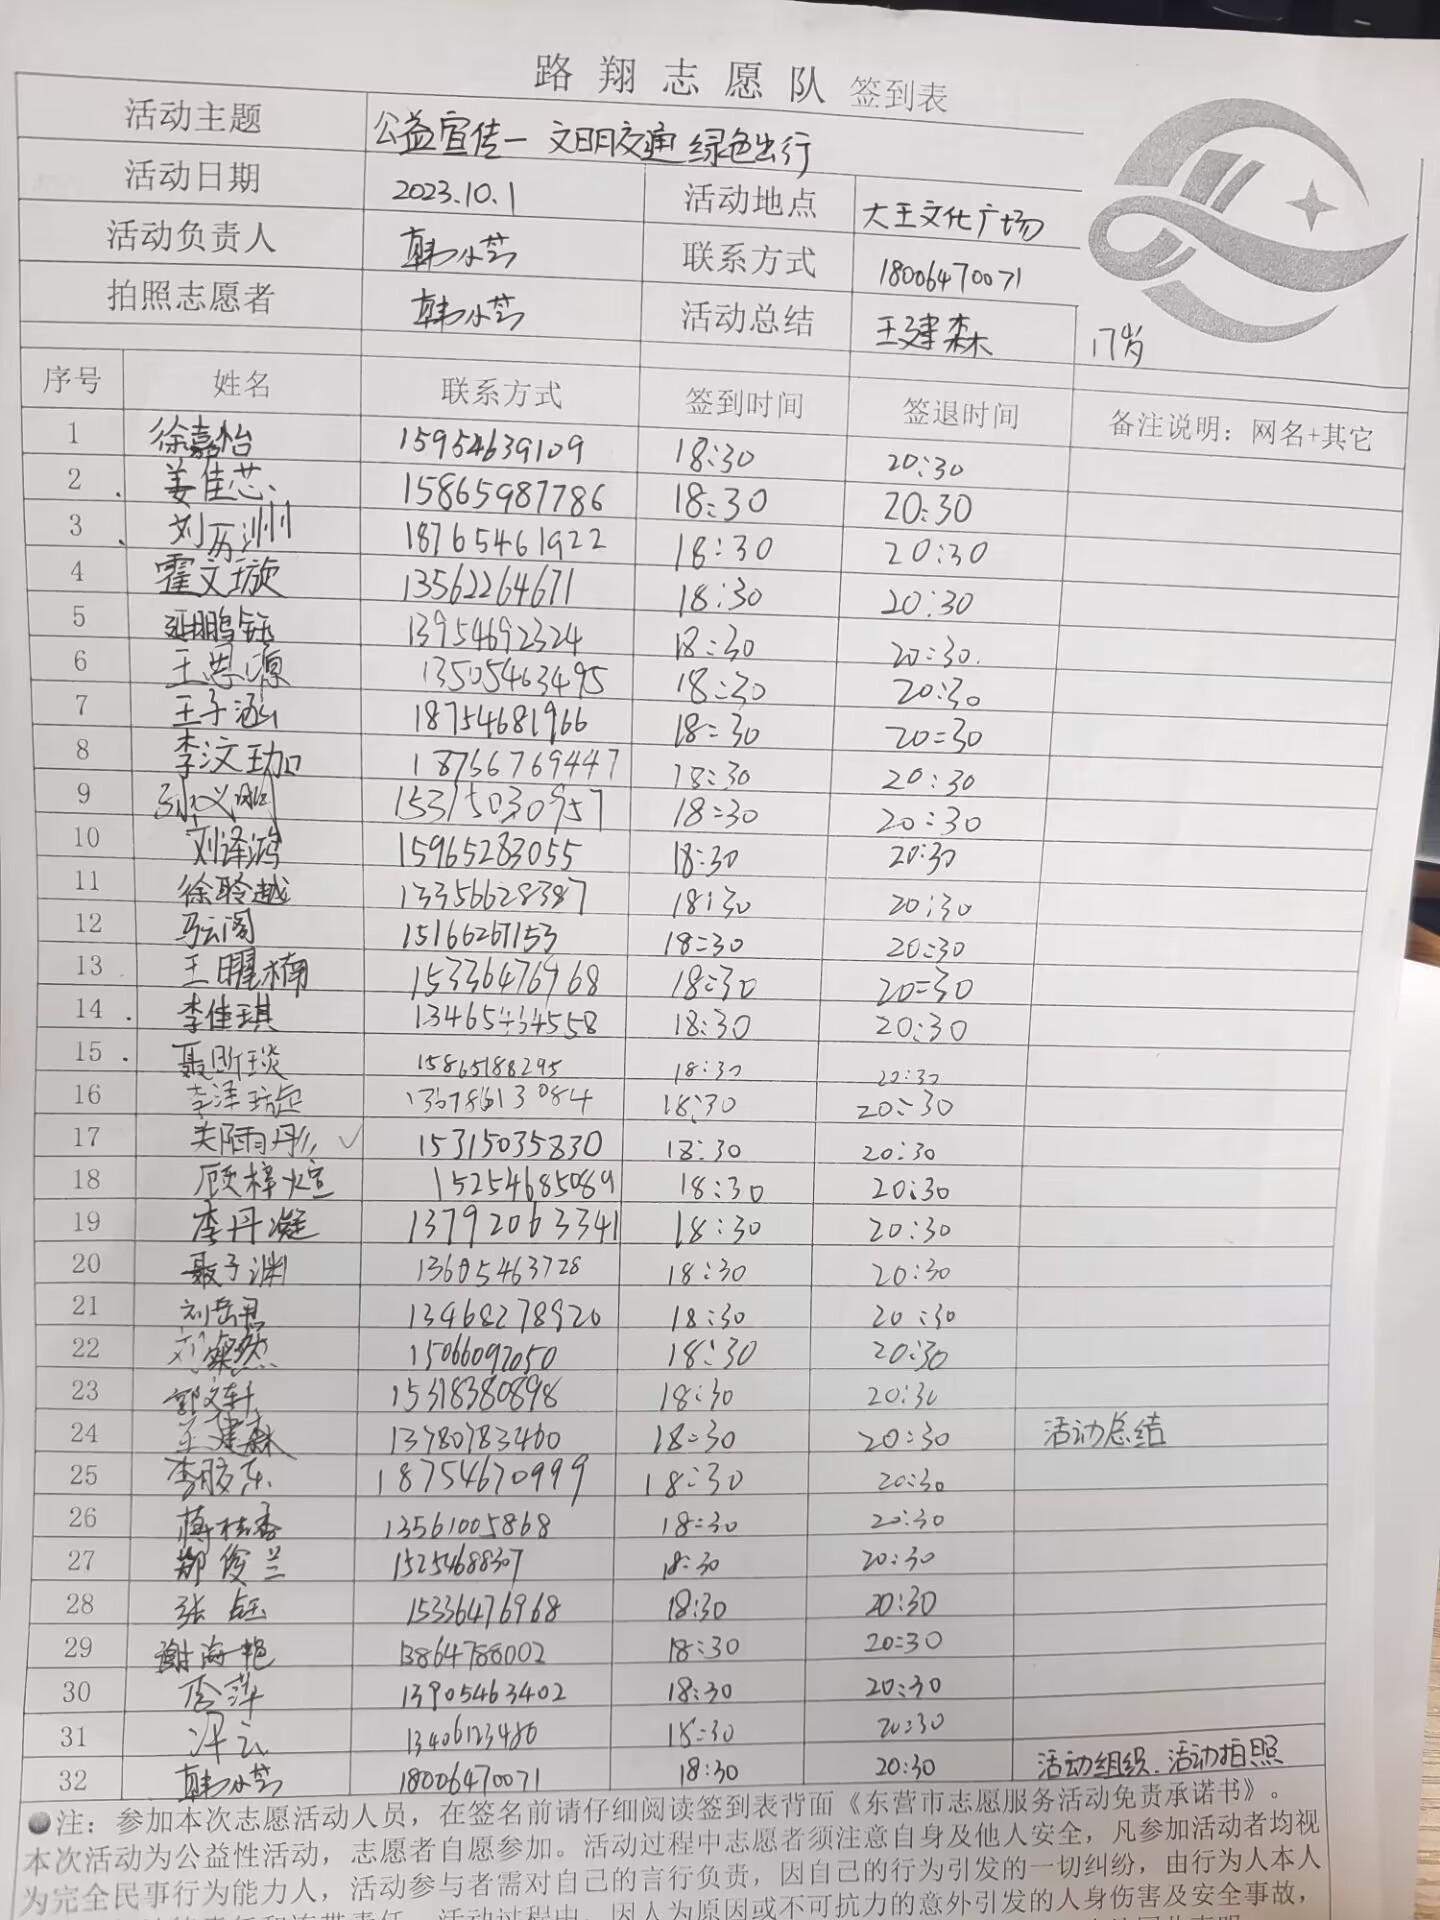 路翔志愿队 签到表
活动主题 公益宣传一 文明交通 绿色出行
活动日期 2023.10.1 活动地点 大王文化广场
活动负责人 韩小芸 联系方式 18006470071
拍照志愿者 韩小芸 活动总结 王建森 17岁
序号 姓名 联系方式 签到时间 签退时间 备注说明：网名+其它
1 徐嘉怡 15954639109 18:30 20:30
2 姜佳芯 15865987786 18:30 20:30
3 刘历洲 18765461922 18:30 20:30
4 霍文璇 13562264671 18:30 20:30
5 13954692324 18:30 20:30
6 王思源 13505463495 18:30 20:30
7 王子涵 18754681966 18:30 20:30
8 李汶珈 18766769447 18:30 20:30
9 15315030957 18:30 20:30
10 刘泽鸿 15965283055 18:30 20:30
11 徐聆越 13356628387 18:30 20:30
12 马云阁 15166267153 18:30 20:30
13 王曜楠 15336476968 18:30 20:30
14 李佳琪 13465434558 18:30 20:30
15 聂昕琰 15865188295 18:30 20:30
16 18:30 20:30
17 15315035830 18:30 20:30
18 顾梓煊 15254685089 18:30 20:30
19 李丹凝 13792063341 18:30 20:30
20 聂子渊 13605463728 18:30 20:30
21 13468278920 18:30 20:30
22 15066092050 18:30 20:30
23 郭文轩 15318380898 18:30 20:30
24 王建森 13780783460 18:30 20:30 活动总结
25 李胶东 18754670999 18:30 20:30
26 蒋桂香 13561005868 18:30 20:30
27 郑俊兰 15254688307 18:30 20:30
28 张钰 15336476968 18:30 20:30
29 谢海艳 13864788002 18:30 20:30
30 李萍 13905463402 18:30 20:30
31 13406123480 18:30 20:30
32 韩小芸 18006470071 18:30 20:30 活动组织.活动拍照
●注：参加本次志愿活动人员，在签名前请仔细阅读签到表背面《东营市志愿服务活动免责承诺书》。
本次活动为公益性活动，志愿者自愿参加。活动过程中志愿者须注意自身及他人安全，凡参加活动者均视
为完全民事行为能力人，活动参与者需对自己的言行负责，因自己的行为引发的一切纠纷，由行为人本人
活动过程中，因人为原因或不可抗力的意外引发的人身伤害及安全事故，